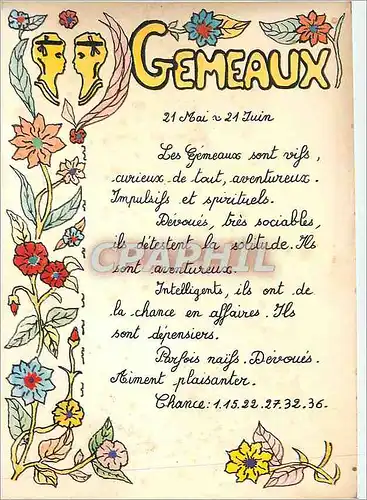 GEMEAUX
21 Mai ~ 21 Juin
Les Gémeaux sont vifs,
curieux de tout, aventureux.
Impulsifs et spirituels.
Dévoués, très sociables,
ils détestent la solitude. Ils
sont aventureux.
CPARAPHIL
Intelligents, ils ont de
la chance en affaires. Ils
sont dépensiers.
Parfois naïfs. Dévoués.
Aiment plaisanter.
Chance: 1.15.22.27.32.36.